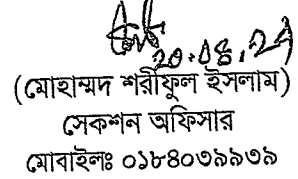 20.08.27
(মোহাম্মদ শরীফুল ইসলাম)
সেকশন অফিসার
মোবাইলঃ ০১৮৪০৩৯৯৩৯